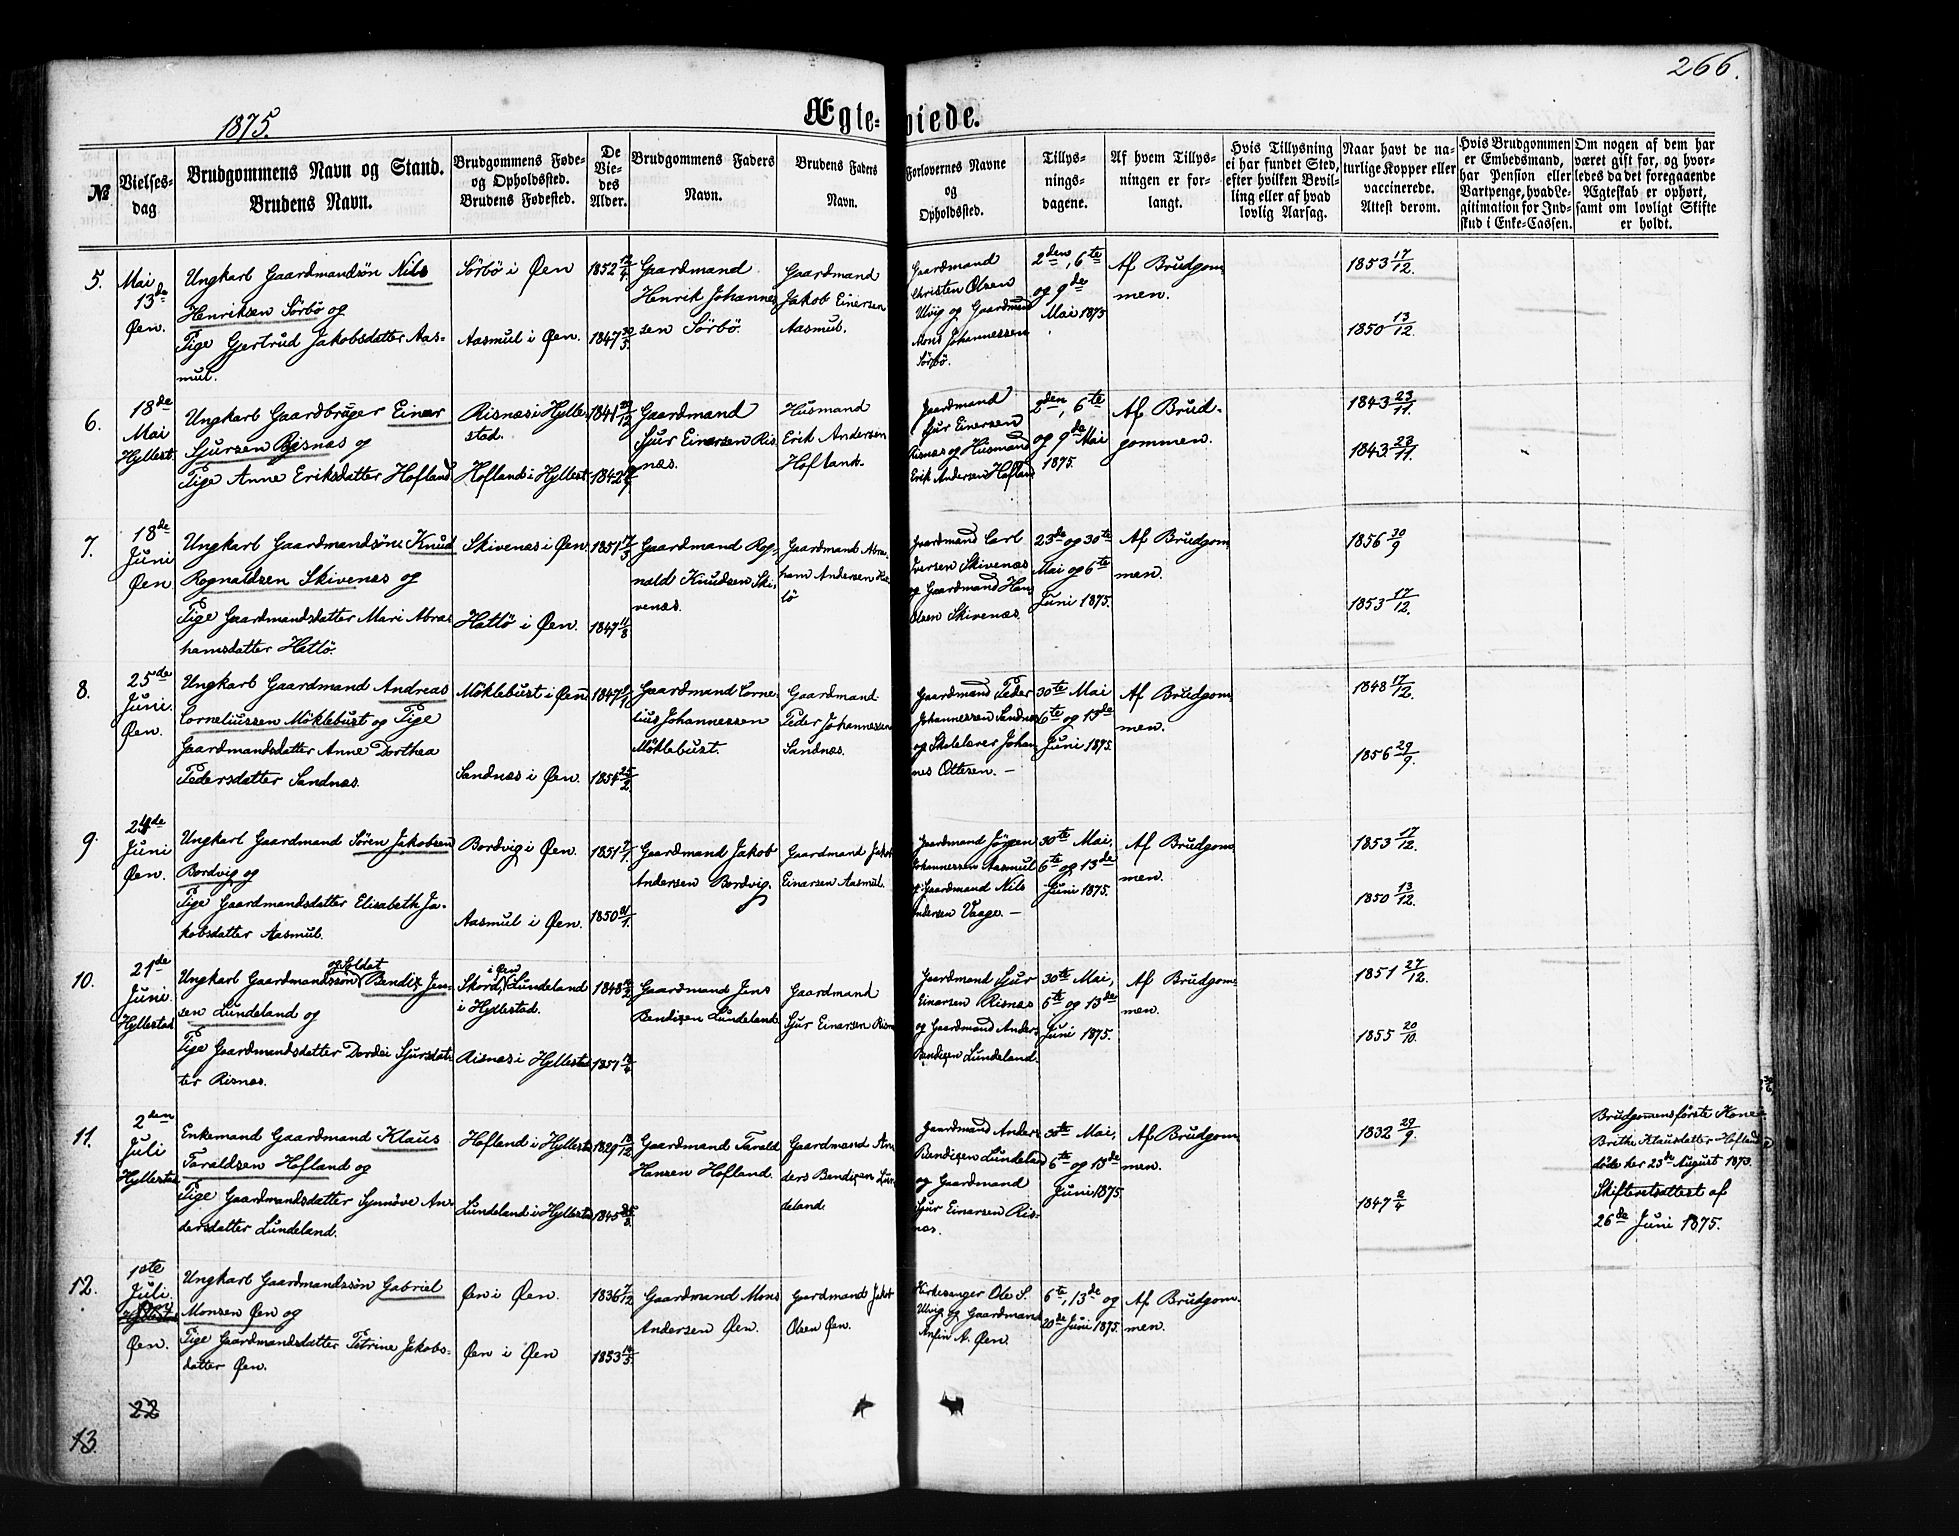 266.
1875.
Ægte-viede.
№
Vielses-
dag
Brudgommens Navn og Stand.
Brudens Navn.
Brudgommens Føde-
og Opholdssted.
Brudens Fødested.
De
Vie-
des
Alder.
Brudgommens Faders
Navn.
Brudens Faders
Navn.
Forlovernes Navne
og
Opholdssted.
Tillys-
nings-
dagene.
Af hvem Tillys-
ningen er for-
langt.
Hvis Tillysning
ei har fundet Sted,
efter hvilken Bevil-
ling eller af hvad
lovlig Aarsag.
Naar havt de na-
turlige Kopper eller
vaccinerede.
Attest derom.
Hvis Brudgommen
er Embedsmand,
har Pension eller
Vartpenge, hvad Le-
gitimation for Ind-
skud i Enke-Cassen.
Om nogen af dem har
været gift før, og hvor-
ledes da det foregaaende
Ægteskab er ophørt,
samt om lovligt Skifte
er holdt.
5.
Mai
13de
Øen.
Ungkarl Gaardmandsøn Nils
Henriksen Sörbö og
Pige Gjertrud Jakobsdatter Aas-
mul.
Sörbö i Øen
Aasmul i Øen.
1852
1847
Gaardmand
Henrik Johannes
sen Sörbö.
Gaardmand
Jakob Einersen
Aasmul.
Gaardmand
Christen Olsen
Ulvig og Gaardmand
Mons Johannessen
Sörbö.
2den, 6te
og 9de
Mai 1875
Af Brudgom
men.
1853 17/12.
1850 13/12.
6.
18de
Mai
Hyllest.
Ungkarl Gaardbruger Einar
Sjursen Risnæs og
Pige Anne Eriksdatter Hofland
Risnæs i Hylle
stad.
Hofland i Hyllest.
1841
1842
Gaardmand
Sjur Einersen Ris
næs.
Husmand
Erik Andersen
Hofland.
Gaardmand
Sjur Einersen
Risnæs og Husmand
Erik Andersen Hofland
2den, 6te
og 9de Mai
1875.
Af Brud-
gommen.
1843 23/11.
1843 23/11.
7.
18de
Juni
Øen
Ungkarl Gaardmandsøn Knud
Rognaldsen Skivenæs og
Pige Gaardmandsdatter Mari Abra-
hamsdatter Hatlö.
Skivenæs i Øen
Hatlö i Øen.
1851 17/3
1847 11/8
Gaardmand Rog-
nald Knudsen Ski-
venæs.
Gaardmand Abra-
ham Andersen Hat-
lö
Gaardmand Carl
Iversen Skivenæs
og Gaardmand Hans
Olsen Skivenæs.
23de og 30te
Mai og 6te
Juni 1875.
Af Brudgom
men.
1856 30/9
1853 17/12.
8.
25de
Juni
Øen.
Ungkarl Gaardmand Andreas
Corneliussen Möklebust og Pige
Gaardmandsdatter Anne Dorthea
Pedersdatter Sandnæs.
Möklebust i Øen
Sandnæs i Øen.
1847
1854 25/2
Gaardmand Corne-
lius Johannessen
Möklebust.
Gaardmand
Peder Johannessen
Sandnæs.
Gaardmand Peder
Johannessen Sandnæs
og Skolelærer Johan
nes Ottesen. —
30te Mai
6te og 13de
Juni 1875.
Af Brudgom
men.
1848 17/12.
1856 29/9.
9.
24de
Juni
Øen.
Ungkarl Gaardmand Sören Jakobsen
Bordvig og
Pige Gaardmandsdatter Elisabeth Ja-
kobsdatter Aasmul.
Bordvig i Øen.
Aasmul i Øen.
1851
1850
Gaardmand Jakob
Andersen Bordvig.
Gaardmand Jakob
Einarsen Aasmul.
Gaardmand Jörgen
Johannessen Aasmul
og Gaardmand Nils
Andersen Vaage. —
30te Mai,
6te og 13de
Juni 1875.
Af Brudgom
men.
1853 17/12.
1850 13/12.
10.
21de
Juni
Hyllestad
og Soldat
Ungkarl Gaardmandssön Bendix Jen-
sen Lundeland og
Pige Gaardmandsdatter Dordei Sjursdat-
ter Risnæs.
i Øen
Skord, (Lundeland
i Hyllestad.
Risnæs i Hyllestad
1848
1857
Gaardmand Jens
Bendixen Lundeland.
Gaardmand
Sjur Einarsen Risnæs
Gaardmand Sjur
Einarsen Risnæs
og Gaardmand Anders
Bendixen Lundeland.
30te Mai,
6te og 13de
Juni 1875.
Af Brudgom
men.
1851 27/12.
1855 20/10.
11.
2den
Juli
Hyllestad
Enkemand Gaardmand Klaus
Taraldsen Hofland og
Pige Gaardmandsdatter Synnöve An-
dersdatter Lundeland.
Hofland i Hyllestad
Lundeland i Hyllestad
1829
1845
Gaardmand Tarald
Hansen Hofland.
Gaardmand An-
ders Bendixen Lun-
deland.
Gaardmand Anders
Bendixen Lundeland
og Gaardmand
Sjur Einarsen Ris-
næs.
30te Mai,
6te og 13de
Juni 1875
Af Brudgom
men.
1832 29/9.
1847 2/4
Brudgommens förste Kone
Brithe Klausdatter Hofland
döde her 23de August 1873.
Skifteretsattest af
26de Juni 1875.
12.
1ste
Juli
Øen.
Ungkarl Gaardmandssön Gabriel
Monsen Øen og
Pige Gaardmandsdatter Petrine Jakobs-
datter Øen.
Øen i Øen.
Øen i Øen
1836
1853
Gaardmand Mons
Andersen Øen.
Gaardmand Jakob
Olsen Øen.
Kirkesanger Ole S.
Ulvig og Gaardmand
Anfin A. Øen.
6te, 13de og
20de Juni 1875.
Af Brudgom
men.
22
13.